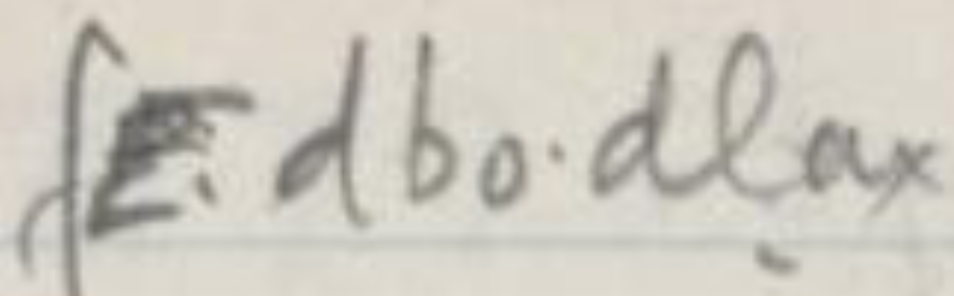 ∫E. db₀·dlax